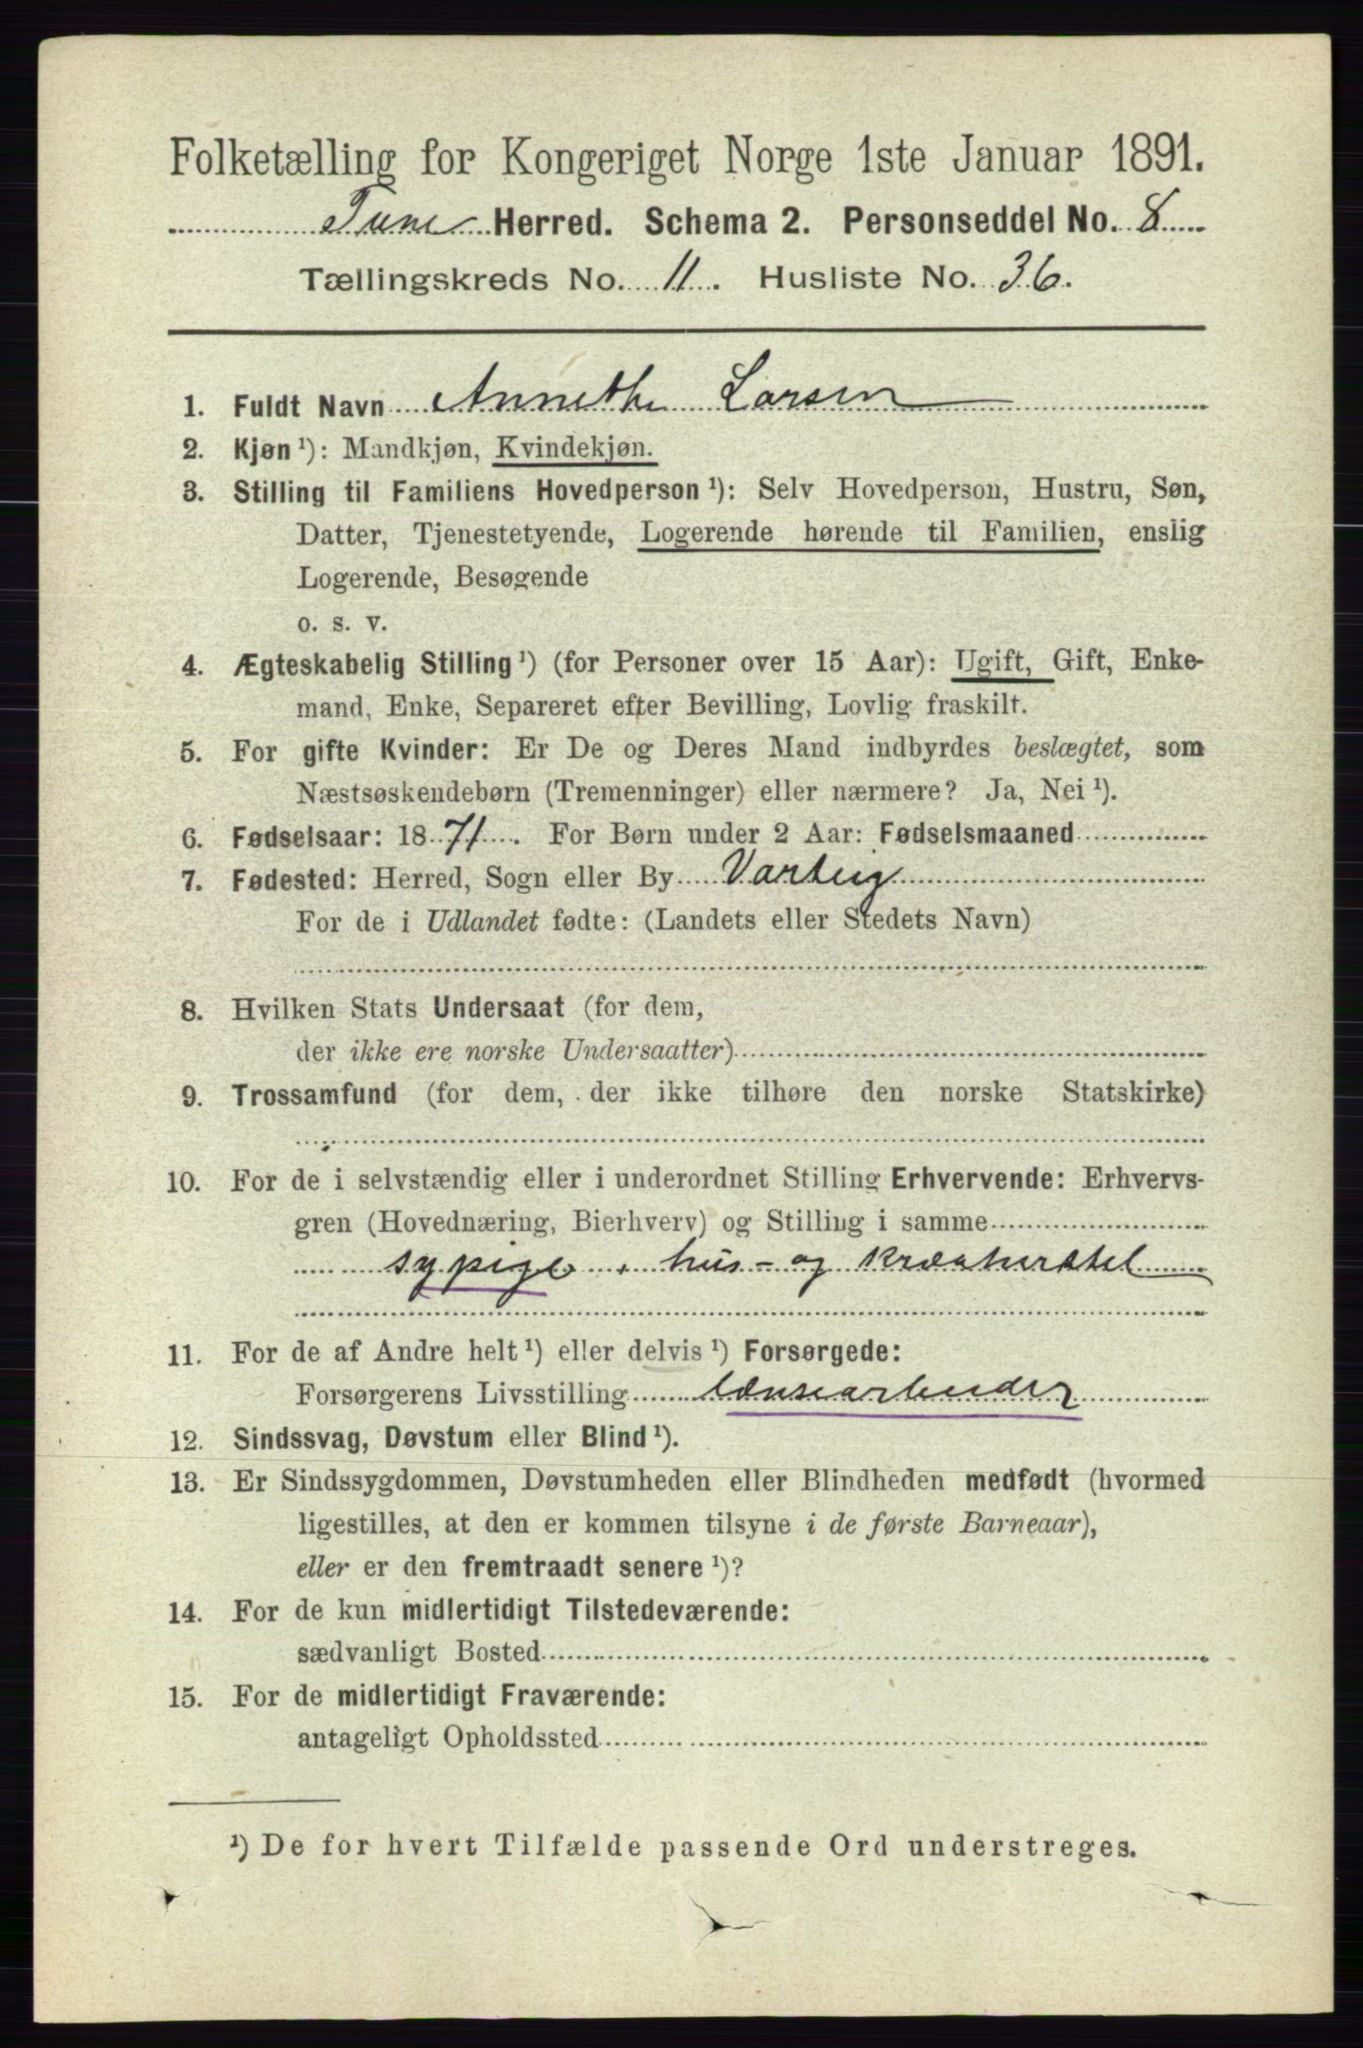 Folketælling for Kongeriget Norge 1ste Januar 1891.
Tune Herred. Schema 2. Personseddel No. 8
Tællingskreds No. 11. Husliste No. 36.
1. Fuldt Navn Annethe Larsen
2. Kjøn ¹): Mandkjøn, Kvindekjøn.
3. Stilling til Familiens Hovedperson ¹): Selv Hovedperson, Hustru, Søn,
Datter, Tjenestetyende, Logerende hørende til Familien, enslig
Logerende, Besøgende
o. s. v.
4. Ægteskabelig Stilling ¹) (for Personer over 15 Aar): Ugift, Gift, Enke-
mand, Enke, Separeret efter Bevilling, Lovlig fraskilt.
5. For gifte Kvinder: Er De og Deres Mand indbyrdes beslægtet, som
Næstsøskendebørn (Tremenninger) eller nærmere? Ja, Nei ¹).
6. Fødselsaar: 1871. For Børn under 2 Aar: Fødselsmaaned
7. Fødested: Herred, Sogn eller By Varteig
For de i Udlandet fødte: (Landets eller Stedets Navn)
8. Hvilken Stats Undersaat (for dem,
der ikke ere norske Undersaatter)
9. Trossamfund (for dem, der ikke tilhøre den norske Statskirke)
10. For de i selvstændig eller i underordnet Stilling Erhvervende: Erhvervs-
gren (Hovednæring, Bierhverv) og Stilling i samme
sypige. hus- og kreaturstel
11. For de af Andre helt ¹) eller delvis ¹) Forsørgede:
Forsørgerens Livsstilling lænsearbeider
12. Sindssvag, Døvstum eller Blind ¹).
13. Er Sindssygdommen, Døvstumheden eller Blindheden medfødt (hvormed
ligestilles, at den er kommen tilsyne i de første Barneaar),
eller er den fremtraadt senere ¹)?
14. For de kun midlertidigt Tilstedeværende:
sædvanligt Bosted
15. For de midlertidigt Fraværende:
antageligt Opholdssted
¹) De for hvert Tilfælde passende Ord understreges.